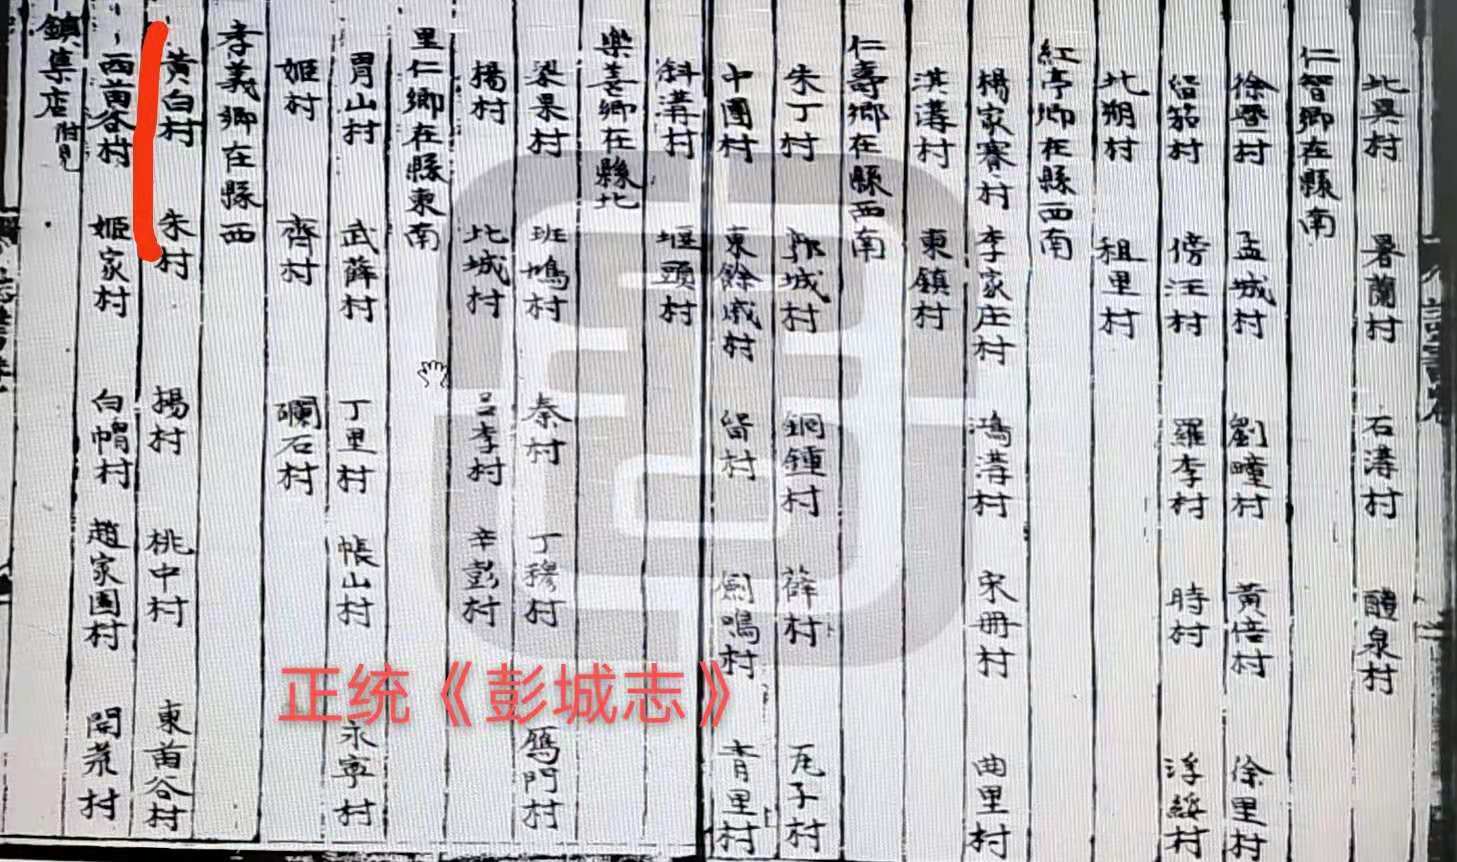 北興村 暑蘭村 石溝村 醴泉村
仁智鄉在縣南
徐疊村 孟城村 劉疃村 黃倍村 徐里村
留茹村 傍汪村 羅李村 時村 浮綏村
北朔村 租里村
紅亭鄉在縣西南
楊家寨村 李家庄村 鴻溝村 宋冊村 曲里村
淇溝村 東鎮村
仁壽鄉在縣西南
朱丁村 城村 銅鍾村 薛村 瓦子村
中團村 東餘戚村 留村 鳴村 青里村
斜溝村 堰頭村
樂善鄉在縣北
梁果村 班鳩村 秦村 丁穆村 鴈門村
楊村 北城村 呂李村 辛彭村
里仁鄉在縣東南
胃山村 武薛村 丁里村 帳山村 永寧村
姬村 齊村 石村
孝義鄉在縣西
黃白村 朱村 楊村 桃中村 東苗谷村
西苗谷村 姬家村 白帽村 趙家圍村 開荒村
鎮集店附見
正统《彭城志》